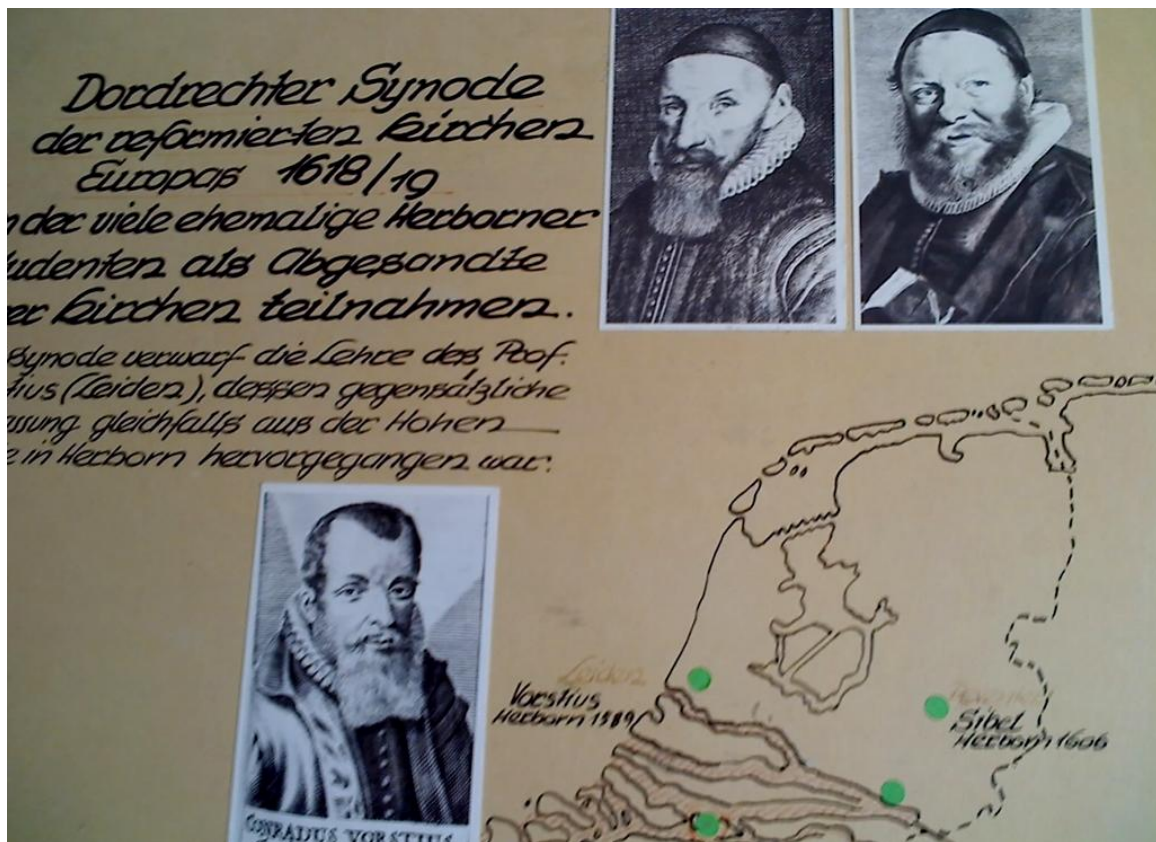 Dordrechter Synode
der reformierten Kirchen
Europas 1618/19
n der viele ehemalige Herborner
udenten als Abgesandte
er Kirchen teilnahmen.
Synode verwarf die Lehre des Prof.
tius (Leiden), dessen gegensätzliche
assung gleichfalls aus der Hohen
e in Herborn hervorgegangen war.
Leiden
Vorstius
Herborn 1589
Sibel
Herborn 1606
CONRADUS VORSTIUS